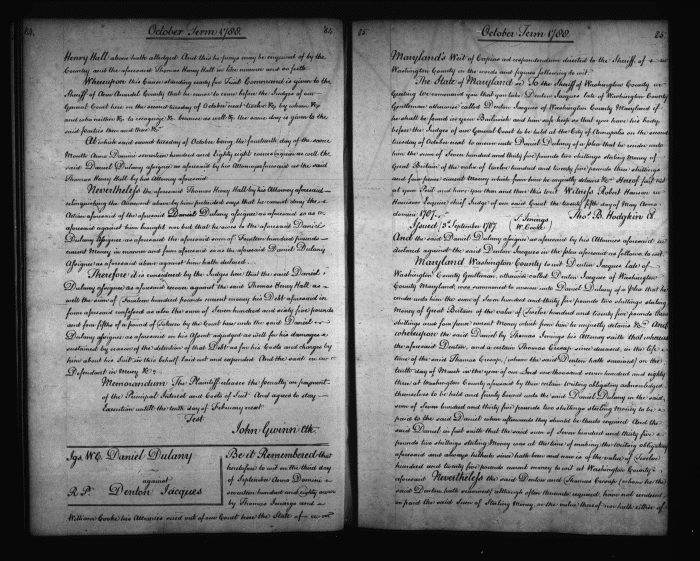 84.
October Term 1788.
84
Henry Hall above hath alledged And this he prays may be enquired of by the
Country and the aforesaid Thomas Henry Hall in like manner and so forth
Whereupon this Cause standing ready for Trial Command is given to the
Sheriff of Ann Arundel County that he cause to come before the Judges of our
General Court here on the second tuesday of October next twelve &c by whom &c
and who neither &c to recognize &c because as well &c the same day is given to the
said parties then and there &c
At which said second tuesday of October being the fourteenth day of the same
Month Anno Domini seventeen hundred and Eighty eight comes again as well the
said Daniel Dulany Assignee as aforesaid by his Attorney aforesaid as the said
Thomas Henry Hall by his Attorney aforesaid
Nevertheless the aforesaid Thomas Henry Hall by his Attorney aforesaid
relinquishing the Averment above by him pretended says that he cannot deny the
Action aforesaid of the aforesaid Daniel Dulany Assignee as aforesaid so as
aforesaid against him brought nor but that he owes to the aforesaid Daniel
Dulany Assignee as aforesaid the aforesaid sum of Fourteen hundred pounds
current Money in manner and form aforesaid as the aforesaid Daniel Dulany
Assignee as aforesaid above against him hath declared
Therefore it is considered by the Judges here that the said Daniel
Dulany Assignee as aforesaid recover against the said Thomas Henry Hall as
well the sum of Fourteen hundred pounds current money his Debt aforesaid in
form aforesaid confessed as also the sum of Seven hundred and sixty five pounds
and four fifths of a pound of Tobacco by the Court here unto the said Daniel
Dulany Assignee as aforesaid on his Assent adjudged as well for his damages
sustained by reason of the detention of that Debt as for his Costs and charges by
him about his Suit in this behalf laid out and expended And the said
Defendant in Mercy &c
Memorandum The Plaintiff releases the penalty on payment
of the Principal Interest and Costs of Suit And agrees to stay
Execution until the tenth day of February next
Test
John Gwinn Clk.
Daniel Dulany
against
R. P. Denton Jacques
Be it Remembered that
heretofore to wit on the third day
of September Anno Domini
seventeen hundred and eighty seven
by Thomas Jenings and
William Cooke his Attornies sued out of our Court here the State of
85
October Term 1788.
85.
Maryland's Writ of Capias ad respondendum directed to the Sheriff of
Washington County in the words and figures following to wit
The State of Maryland To the Sheriff of Washington County
Greeting we command you that you take Denton Jacques late of Washington County
Gentleman otherwise called Denton Jacques of Washington County Maryland if
he shall be found in your Bailiwick and him safe keep so that you have his body
before the Judges of our General Court to be held at the City of Annapolis on the second
tuesday of October next to answer unto Daniel Dulany of a plea that he render unto
him the sum of Seven hundred and thirty five pounds two shillings sterling Money of
Great Britain of the value of twelve hundred and twenty five pounds three shillings
and four pence current Money which from him he unjustly detains &c Hereof fail not
at your Peril and have you then and there this Writ Witness Robert Hanson
Harrison Esquire Chief Judge of our said Court the twenty fifth day of May Anno
domini 1787.
Issued 3d. September 1787
T. Jenings
W. Cooke
Thos. B. Hodgkin Cl.
And the said Daniel Dulany Assignee as aforesaid by his Attornies aforesaid
declared against the said Denton Jacques in the plea aforesaid as follows to wit
Maryland Washington County to wit Denton Jacques late of
Washington County Gentleman, otherwise called Denton Jacques of Washington
County Maryland, was summoned to answer unto Daniel Dulany of a plea that he
render unto him the sum of Seven hundred and thirty five pounds two shillings sterling
Money of Great Britain of the value of Twelve hundred and twenty five pounds three
shillings and four pence current Money which from him he unjustly detains &c And
whereupon the said Daniel by Thomas Jenings his Attorney saith that whereas
the aforesaid Denton, and a certain Thomas Cresap since deceased, in the life
time of the said Thomas Cresap, (whom the said Denton hath survived) on the
tenth day of March in the year of our Lord one thousand seven hundred and eighty
three at Washington County aforesaid by their certain Writing obligatory acknowledged
themselves to be held and firmly bound unto the said Daniel Dulany in the said
sum of Seven hundred and thirty five pounds two shillings sterling Money to be
paid to the said Daniel when afterwards they should be thereto required And the
said Daniel in fact saith that the said sum of Seven hundred and thirty five
pounds two shillings sterling Money was at the time of making the writing obligatory
aforesaid and always hitherto since hath been and now is of the value of Twelve
hundred and twenty five pounds current money to wit at Washington County
aforesaid Nevertheless the said Denton and Thomas Cresap (whom the
said Denton hath survived) although often thereunto required, have not rendered
or paid the said sum of Sterling Money, or the value thereof nor hath either of